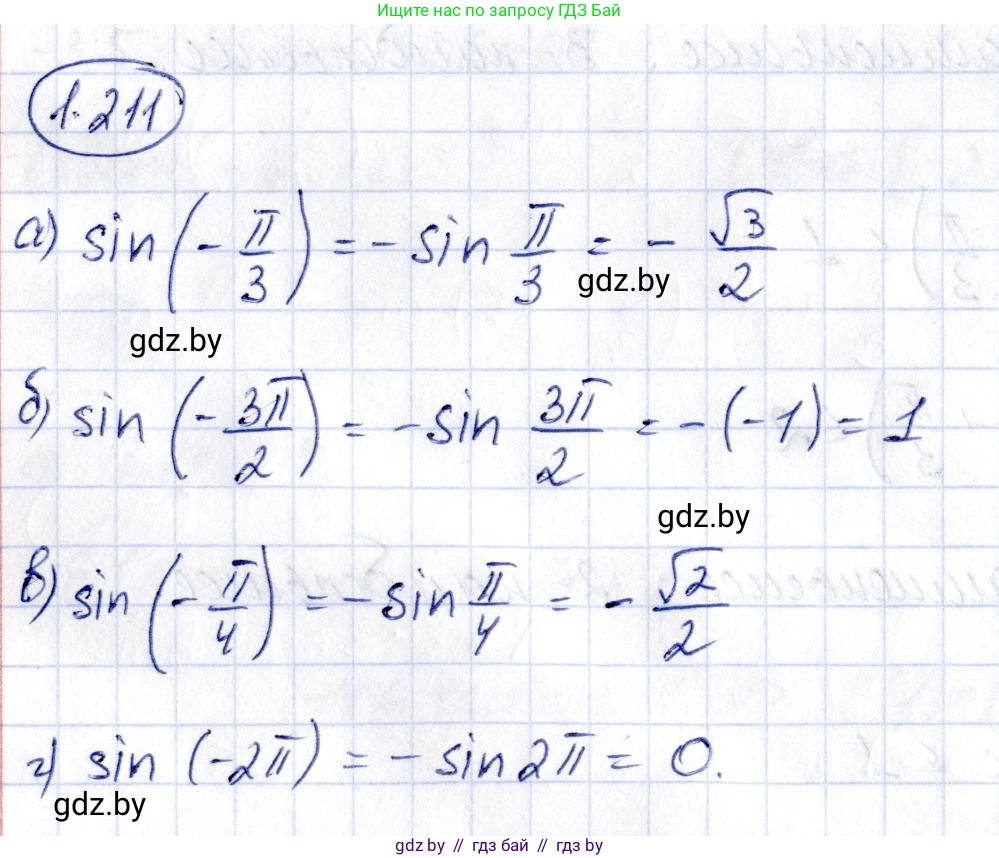 Ищите нас по запросу ГДЗ Бай
1.211
а) sin(-π/3) = -sin π/3 = - √3/2
gdz.by
gdz.by
б) sin(-3π/2) = -sin 3π/2 = -(-1) = 1
gdz.by
в) sin(-π/4) = -sin π/4 = - √2/2
г) sin(-2π) = -sin2π = 0.
gdz.by
gdz.by // гдз бай // гдз by